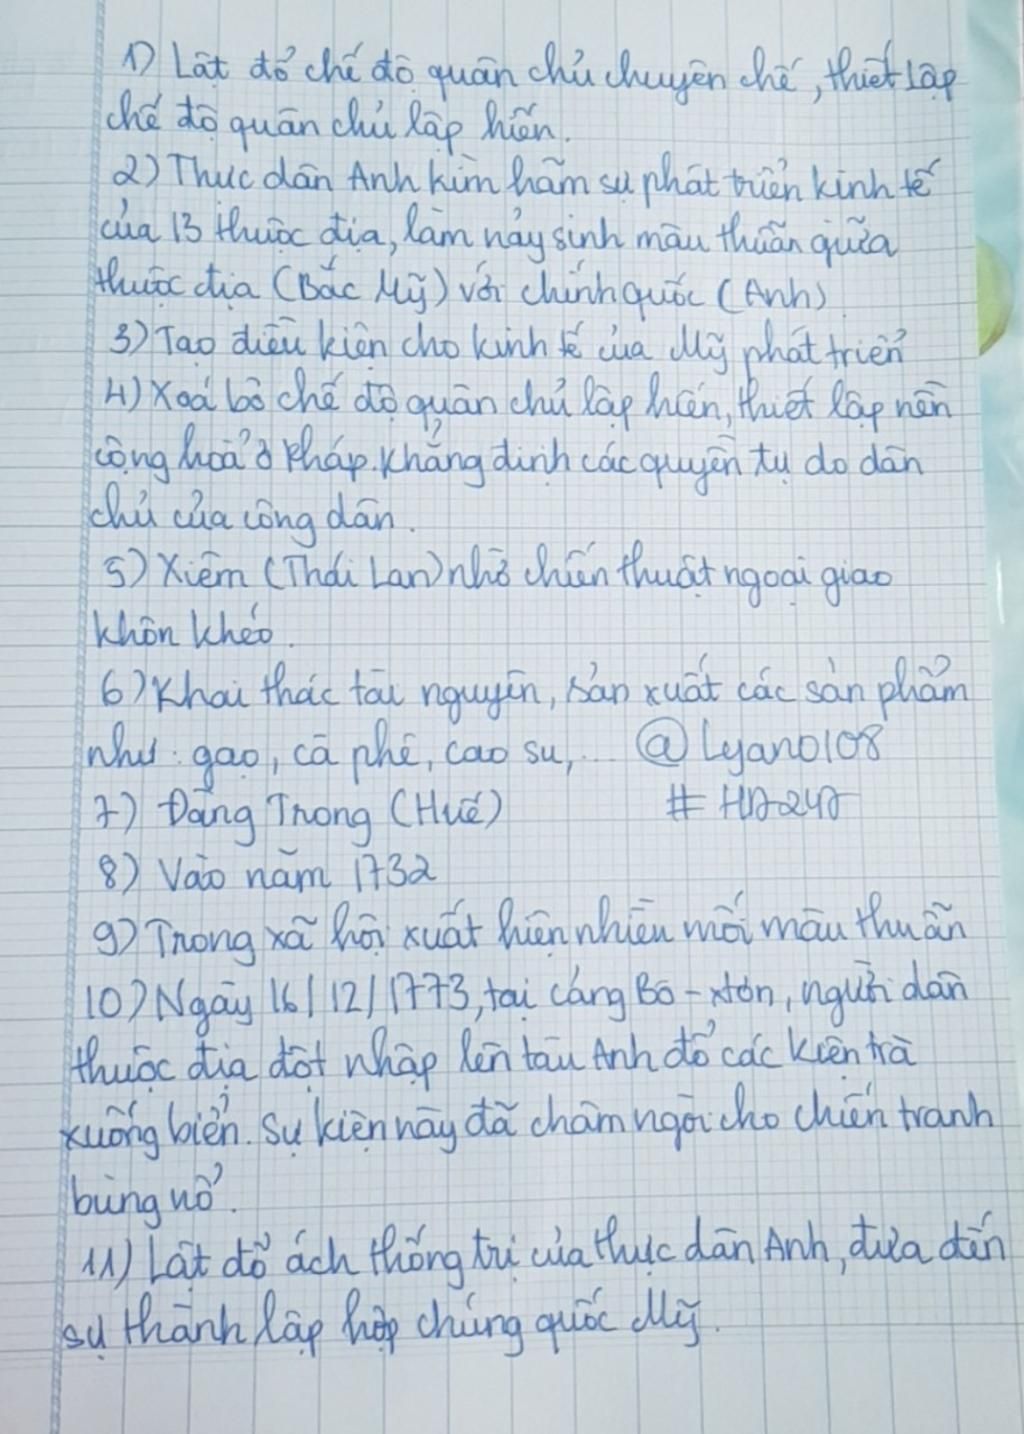 1) Lật đổ chế độ quân chủ chuyên chế, thiết lập
chế độ quân chủ lập hiến.
2) Thực dân Anh kìm hãm sự phát triển kinh tế
của 13 thuộc địa, làm nảy sinh mâu thuẫn giữa
thuộc địa (Bắc Mỹ) với chính quốc (Anh)
3) Tạo điều kiện cho kinh tế của Mỹ phát triển
4) Xoá bỏ chế độ quân chủ lập hiến, thiết lập nền
cộng hoà ở Pháp. Khẳng định các quyền tự do dân
chủ của công dân.
5) Xiêm (Thái Lan) nhờ chiến thuật ngoại giao
khôn khéo.
6) Khai thác tài nguyên, sản xuất các sản phẩm
như: gạo, cà phê, cao su,... @Lyano108
7) Đàng Trong (Huế) #HD247
8) Vào năm 1732
9) Trong xã hội xuất hiện nhiều mối mâu thuẫn
10) Ngày 16/12/1773, tại cảng Bô-xtơn, người dân
thuộc địa đột nhập lên tàu Anh đổ các kiện trà
xuống biển. Sự kiện này đã châm ngòi cho chiến tranh
bùng nổ.
11) Lật đổ ách thống trị của thực dân Anh, đưa đến
sự thành lập hợp chúng quốc Mỹ.